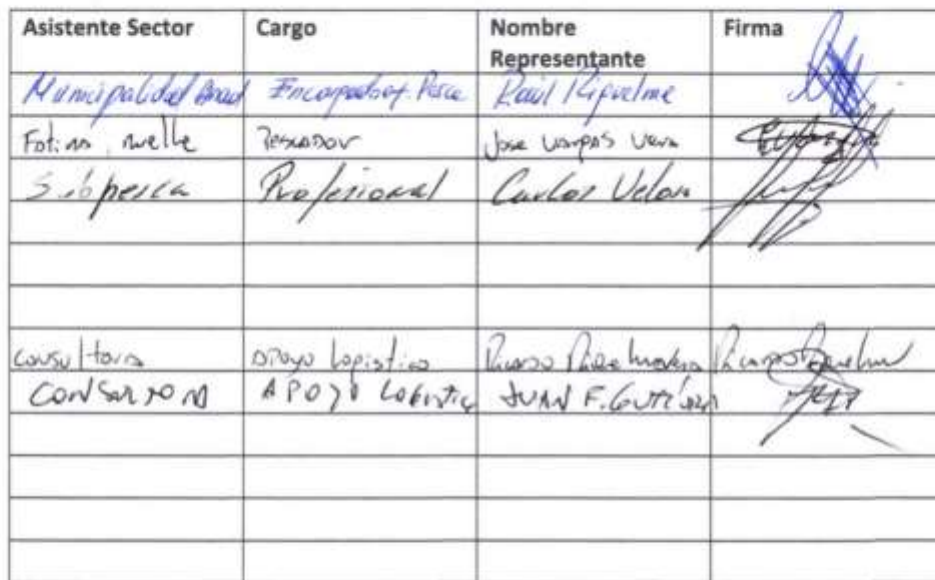 Asistente Sector Cargo Nombre Representante Firma
Municipalidad Encargado of. Pesca Raúl Riquelme
muelle Pescador Jose Vargas Vera
Subpesca Profesional Carlos Veloso
Consultora Apoyo Logistico Ricardo
Consultora APOYO Logistic JUAN F. Gutiérrez